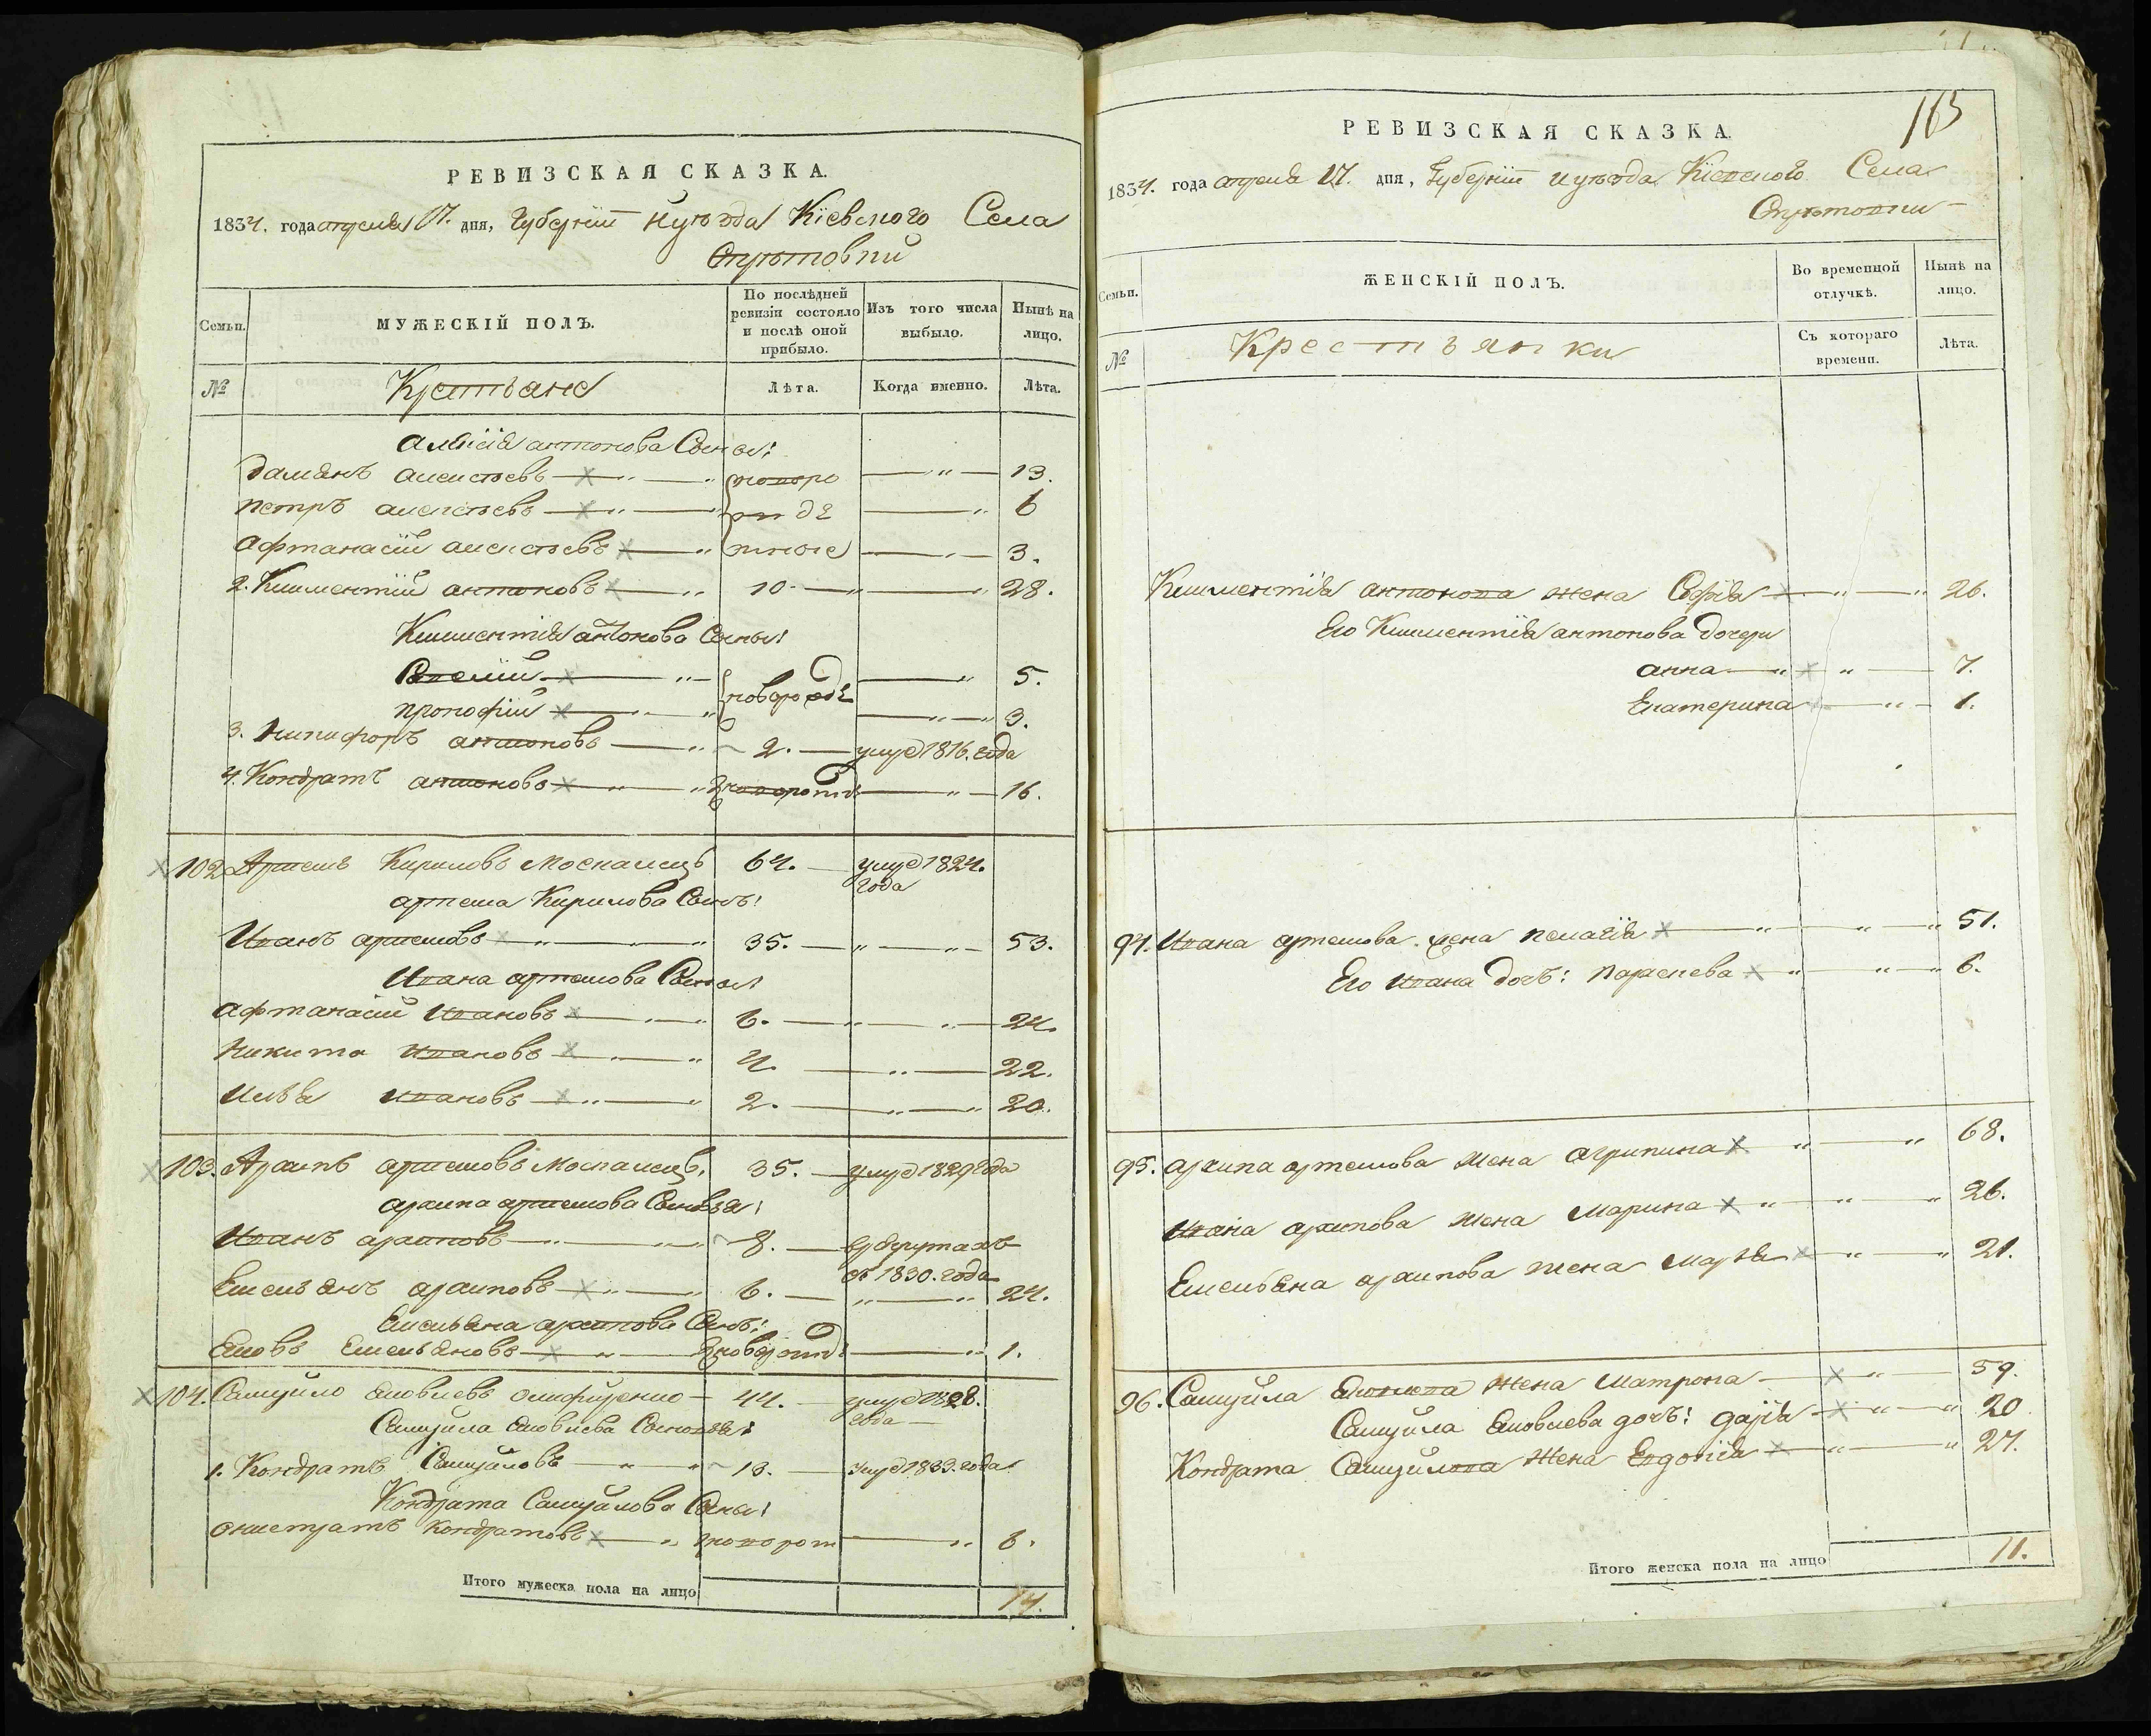 РЕВИЗСКАЯ СКАЗКА.
1834. года апреля 17. дня, Губернїи и уѣзда Кїевского Села
МУЖЕСКІЙ ПОЛЪ.
Семьи.
По послѣдней ревизіи состояло и послѣ оной прибыло.
Изъ того числа выбыло.
Нынѣ на лицо.
№
Крестьяне
Лѣта.
Когда именно.
Лѣта.
Алексія антонова Сыны:
Дамянъ алексѣевъ 13.
Петръ алексѣевъ 6
Афтанасій алексѣевъ 3.
2. Климентій антоновъ 10 28.
Климентія антонова Сыны:
5.
прокофій новорожде 3.
3. Никифоръ антоновъ 2. умре 1816. года
4. Кондратъ антоновъ 16.
102 Артемъ Кириловъ Москалецъ 64. умре 1824. года
артема Кирилова Сынъ:
Иванъ артемовъ 35. 53.
Ивана артемова Сыны:
Афтанасій Ивановъ 6. 24.
Никита Ивановъ 4. 22.
Илья Ивановъ 2. 20.
103. Архипъ артемовъ Москалецъ, 35. умре 1829 года
архипа артемова Сыновья:
Иванъ архиповъ 8. в рекрутахъ
съ 1830. года
Емельянъ архиповъ 6. 24.
Емельяна архипова Сынъ:
Яковъ Емельяновъ 1.
104. Самуйло Яковлевъ 44. умре 1828. года
Самуйла Яковлева Сыновья:
1. Кондратъ Самуйловъ 13. умре 1833. года
Кондрата Самуйлова Сыны:
Кондратовъ 6.
Итого мужеска пола на лицо 14.
163
РЕВИЗСКАЯ СКАЗКА.
1834. года апреля 17. дня, Губернїи и уѣзда Кїевского Села
Семьи.
ЖЕНСКІЙ ПОЛЪ.
Во временной отлучкѣ.
Нынѣ на лицо.
№
Крестьянки
Съ котораго времени.
Лѣта.
Климентія антонова жена Софія 26.
Его Климентія антонова дочери
анна 7.
Екатерина 1.
94. Ивана артемова жена пелагія 51.
Его Ивана дочь: параскева 6.
95. архипа артемова жена агрипина 68.
Ивана архипова жена марина 26.
Емельяна архипова жена марья 21.
96. Самуйла Яковлева жена матрона 59.
Самуйла Яковлева дочь: дарія 20
Кондрата Самуйлова жена Евдокія 27.
Итого женска пола на лицо 11.